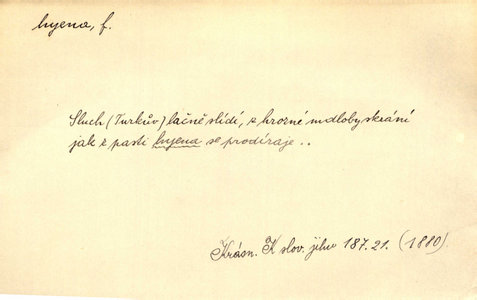 hyena, f.
Sluch (Turkův) lačně slídí, z hrozné mdloby skrání
jak z pasti hyena se prodíraje..
Krásn. K slov. jihu 187.21. (1880)